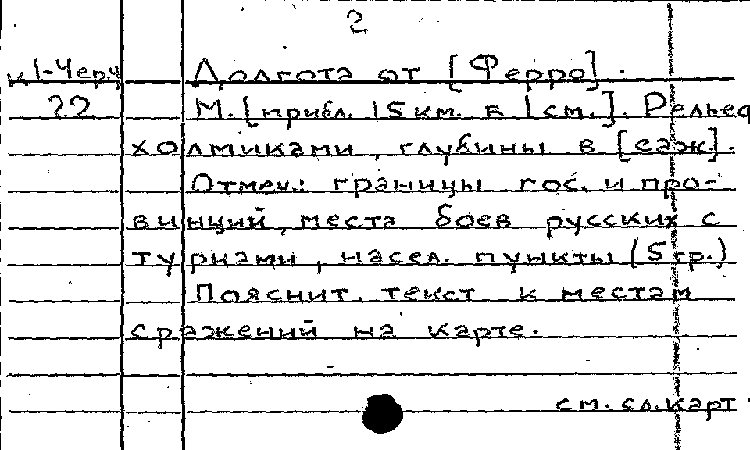 2
к 1-Черч Долгота от [Ферро].
22 М. [прибл. 15 км. в 1 см.]. Рельеф
холмиками, глубины в [саж].
Отмеч.: границы гос. и про-
винций, места боев русских с
турками, насел. пункты (5 гр.)
Пояснит. текст к местам
сражений на карте.
см. сл. карт